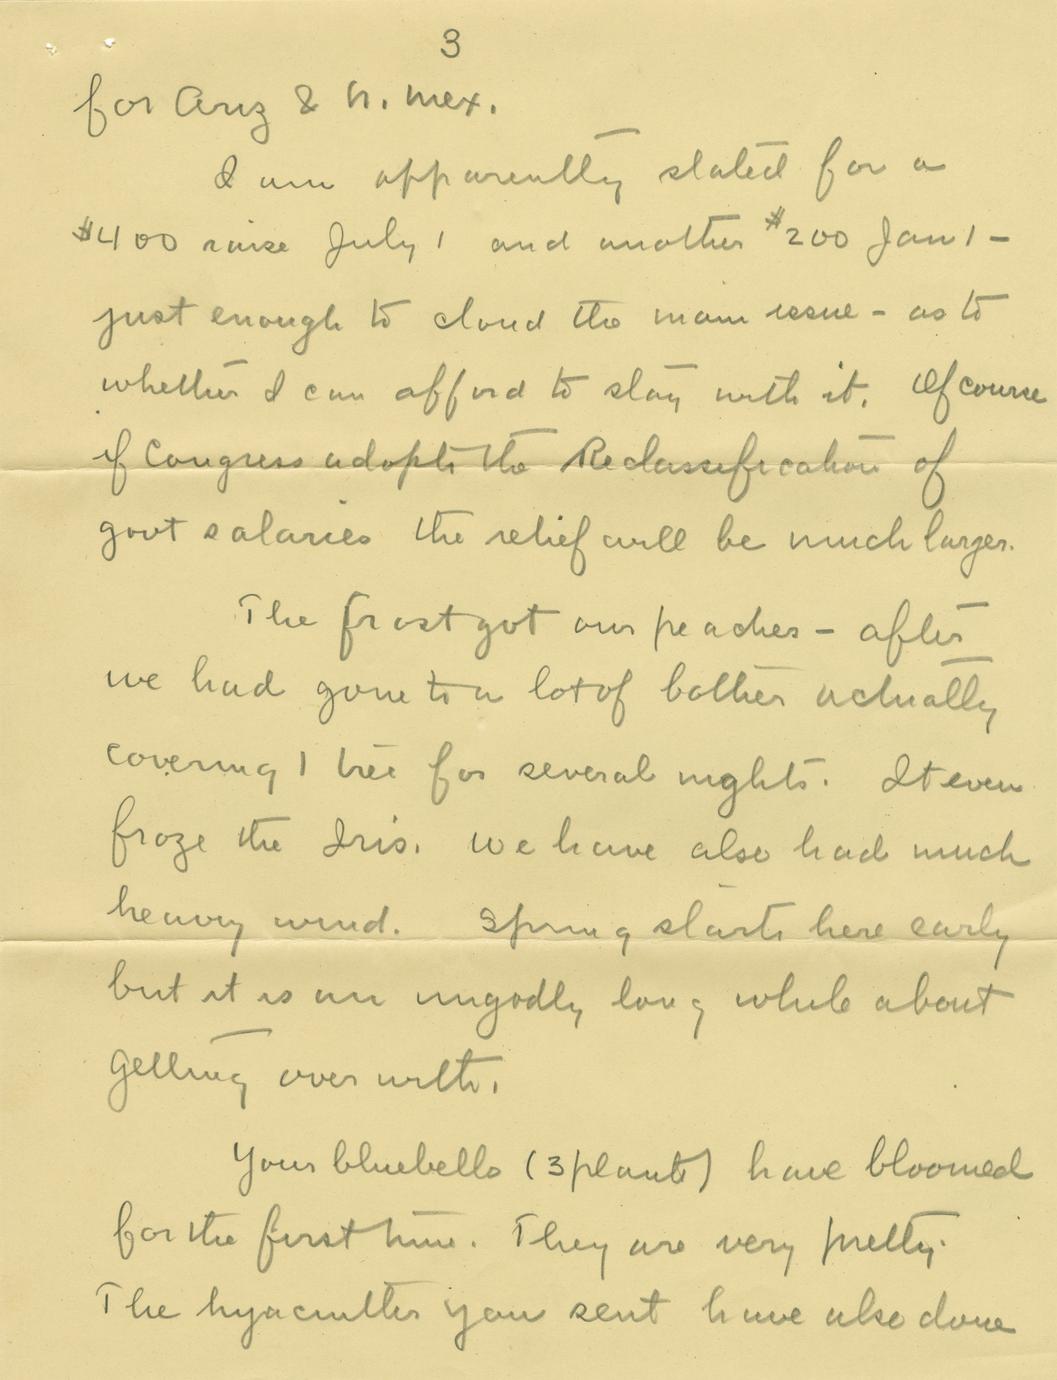 3
for Ariz & N. Mex.
I am apparently slated for a
$400 raise July 1 and another $200 Jan 1 –
just enough to cloud the main issue – as to
whether I can afford to stay with it. Of course
if Congress adopts the Reclassification of
govt salaries the relief will be much larger.
The frost got our peaches – after
we had gone to a lot of bother actually
covering 1 tree for several nights. It even
froze the Iris. We have also had much
heavy wind. Spring starts here early
but it is an ungodly long while about
getting over with.
Your bluebells (3 plants) have bloomed
for the first time. They are very pretty.
The hyacinths you sent have also done